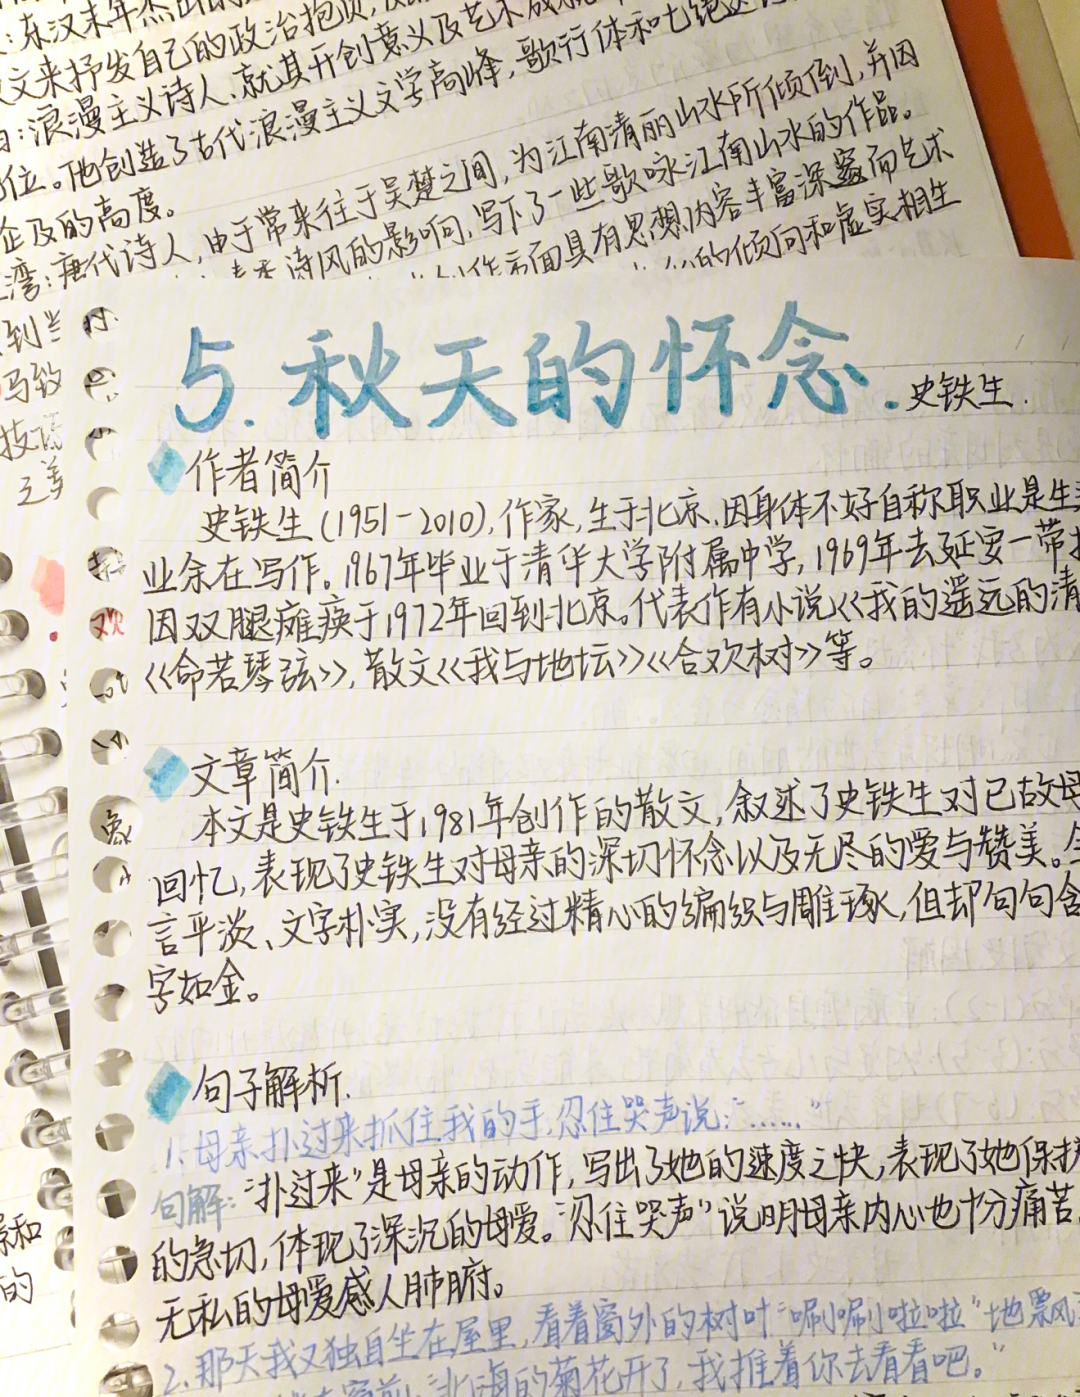 :东汉末年杰出的
文来抒发自己的政治抱负,
:浪漫主义诗人,就其开创意义及艺术成就
位。他创造了古代浪漫主义文学高峰,歌行体和七绝
企及的高度。
湾:唐代诗人,由于常来往于吴楚之间,为江南清丽山水所倾倒,并因
诗风的影响,写下了一些歌咏江南山水的作品。
具有思想内容丰富深邃而艺术
的倾向和虚实相生
到
马致
技
之美
5.秋天的怀念.史铁生.
作者简介
史铁生(1951-2010),作家,生于北京.因身体不好自称职业是生
业余在写作。1967年毕业于清华大学附属中学,1969年去延安一带
因双腿瘫痪于1972年回到北京。代表作有小说<<我的遥远的清
<<命若琴弦>>,散文<<我与地坛>><<合欢树>>等。
文章简介.
本文是史铁生于1981年创作的散文,叙述了史铁生对已故母
回忆,表现了史铁生对母亲的深切怀念以及无尽的爱与赞美。
言平淡、文字朴实,没有经过精心的编织与雕琢,但却句句含
字如金。
句子解析.
1.母亲扑过来抓住我的手,忍住哭声说:"......"
句解:"扑过来"是母亲的动作,写出了她的速度之快,表现了她保护
的急切,体现了深沉的母爱。"忍住哭声"说明母亲内心也十分痛苦,
无私的母爱感人肺腑。
2.那天我又独自坐在屋里,看着窗外的树叶"唰唰啦啦"地飘
"北海的菊花开了,我推着你去看看吧。"
和
的